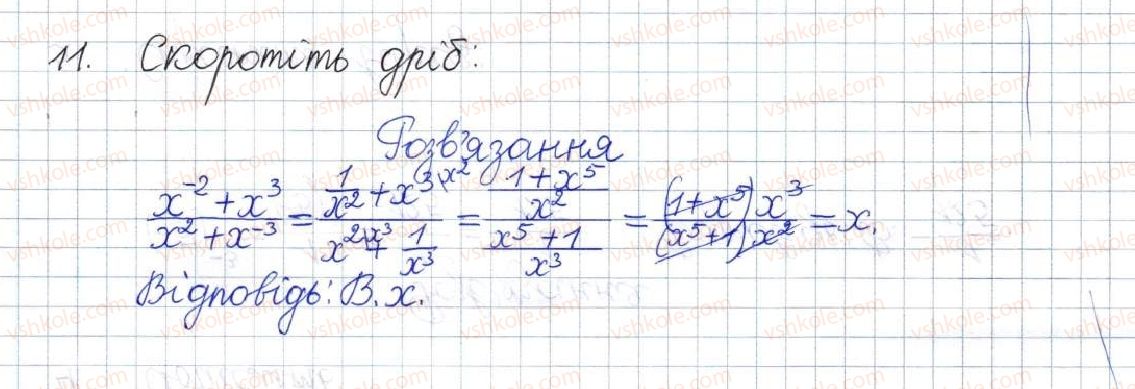 11. Скоротіть дріб:
Розв'язання
\frac{x^{-2}+x^3}{x^2+x^{-3}} = \frac{\frac{1}{x^2}+x^{3\backslash x^2}}{x^{2\backslash x^3}+\frac{1}{x^3}} = \frac{\frac{1+x^5}{x^2}}{\frac{x^5+1}{x^3}} = \frac{(1+x^5)x^3}{(x^5+1)x^2} = x.
Відповідь: В. x.